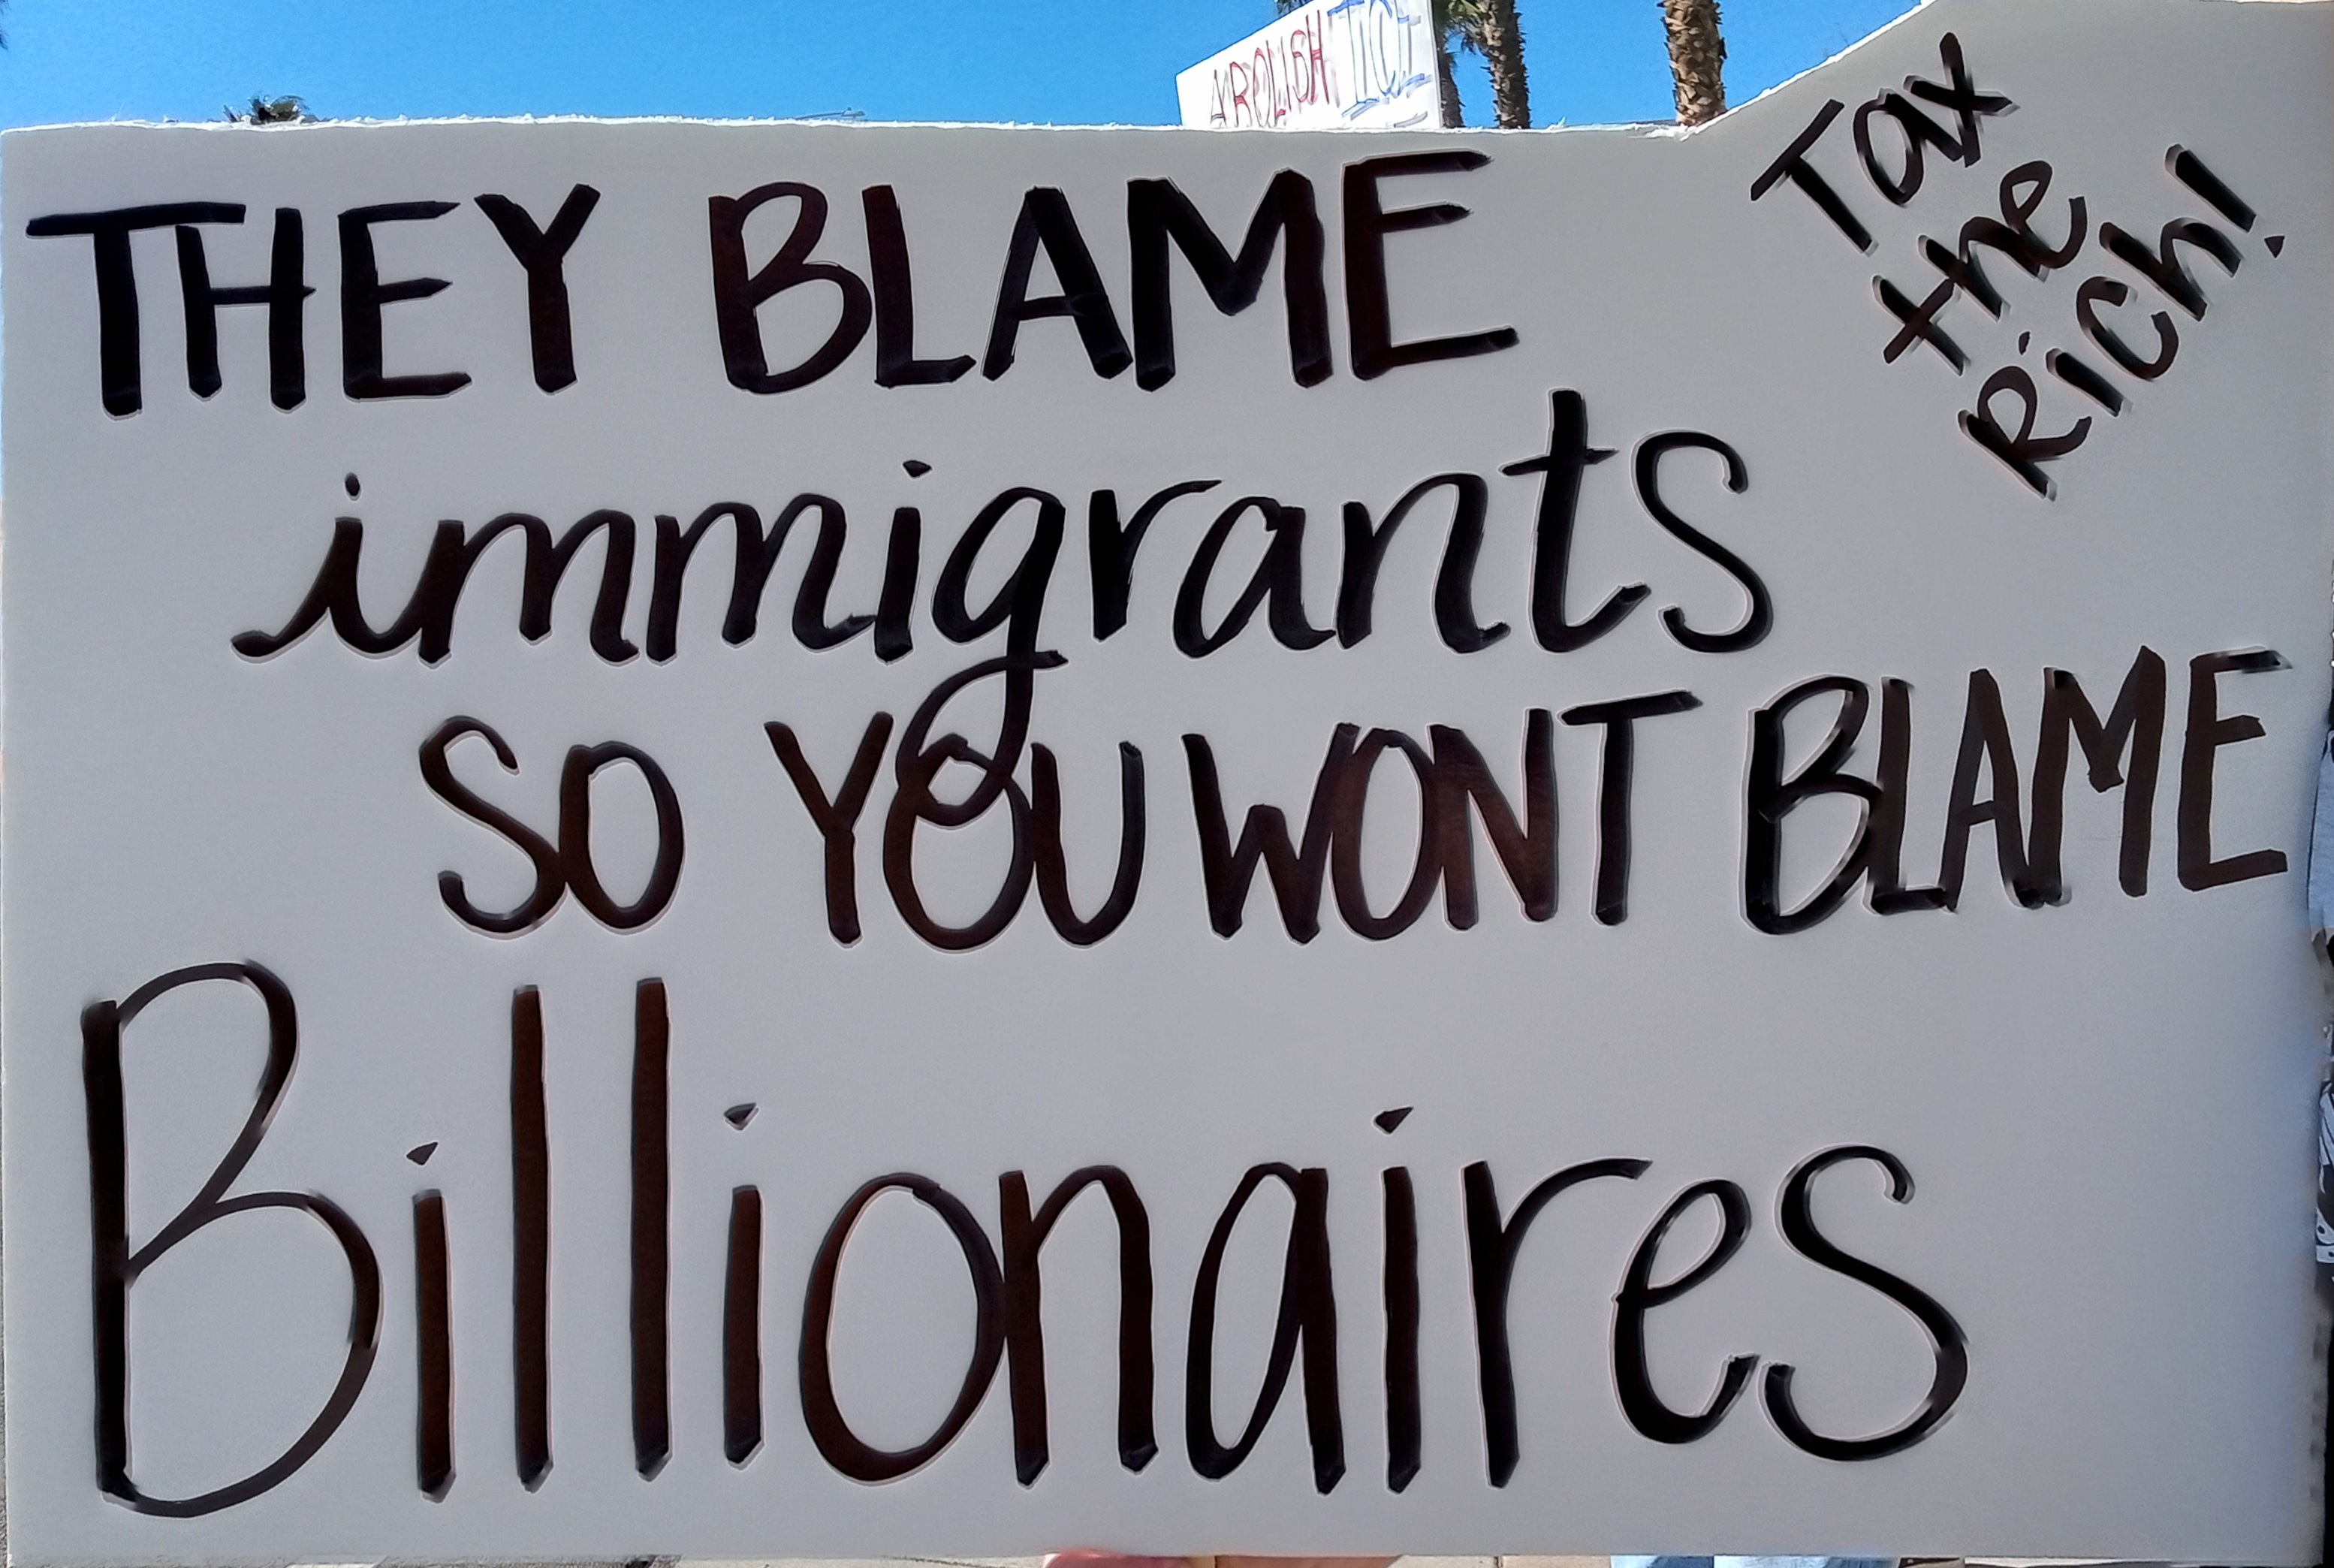 ABOLISH ICE
Tax
the
Rich!
THEY BLAME
immigrants
SO YOU WONT BLAME
Billionaires